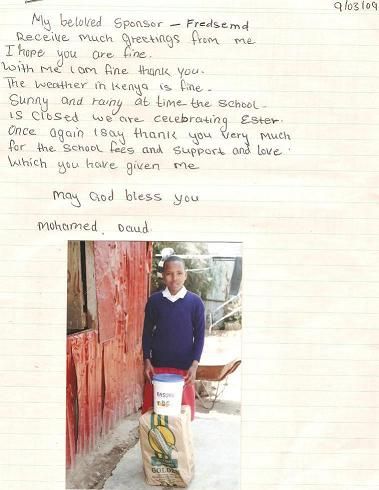 9/03/09
My beloved Sponsor - Fredsemd
Receive much greetings from me
I hope you are fine.
With me I am fine thank you.
The weather in Kenya is fine.
Sunny and rainy at time the school.
is closed we are celebrating Ester.
Once again I say thank you very much
for the school fees and support and love.
Which you have given me
May God bless you
Mohamed. Daud.
GOLD